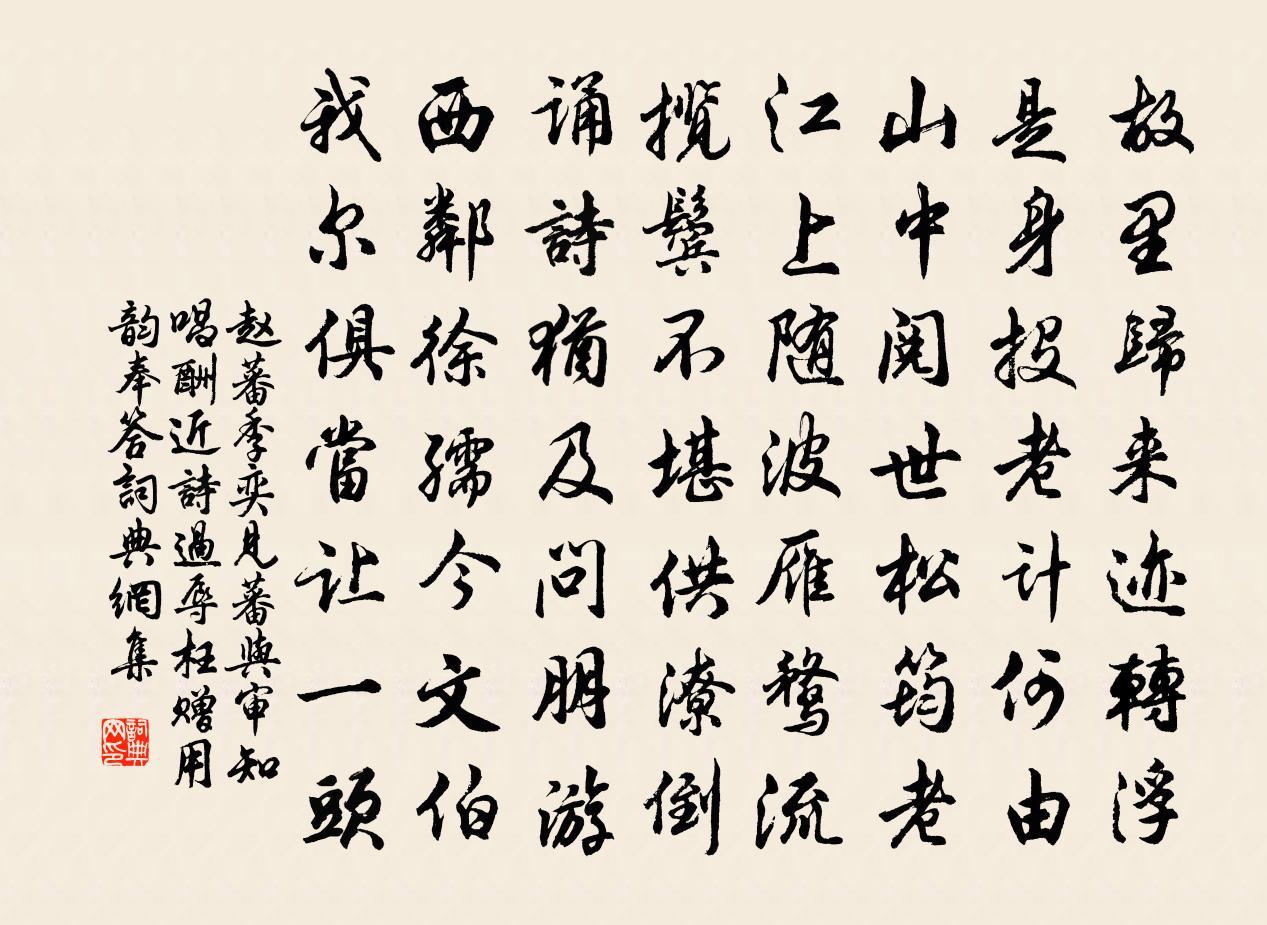 故里歸来迹轉浮
是身投老计何由
山中阅世松筠老
江上随波雁鹜流
揽鬓不堪供潦倒
诵詩猶及问朋游
西鄰徐孺今文伯
我尔俱當让一頭
赵蕃季奕见蕃與审知
唱酬近詩過辱枉赠用
韵奉答詞典網集
詞典网印